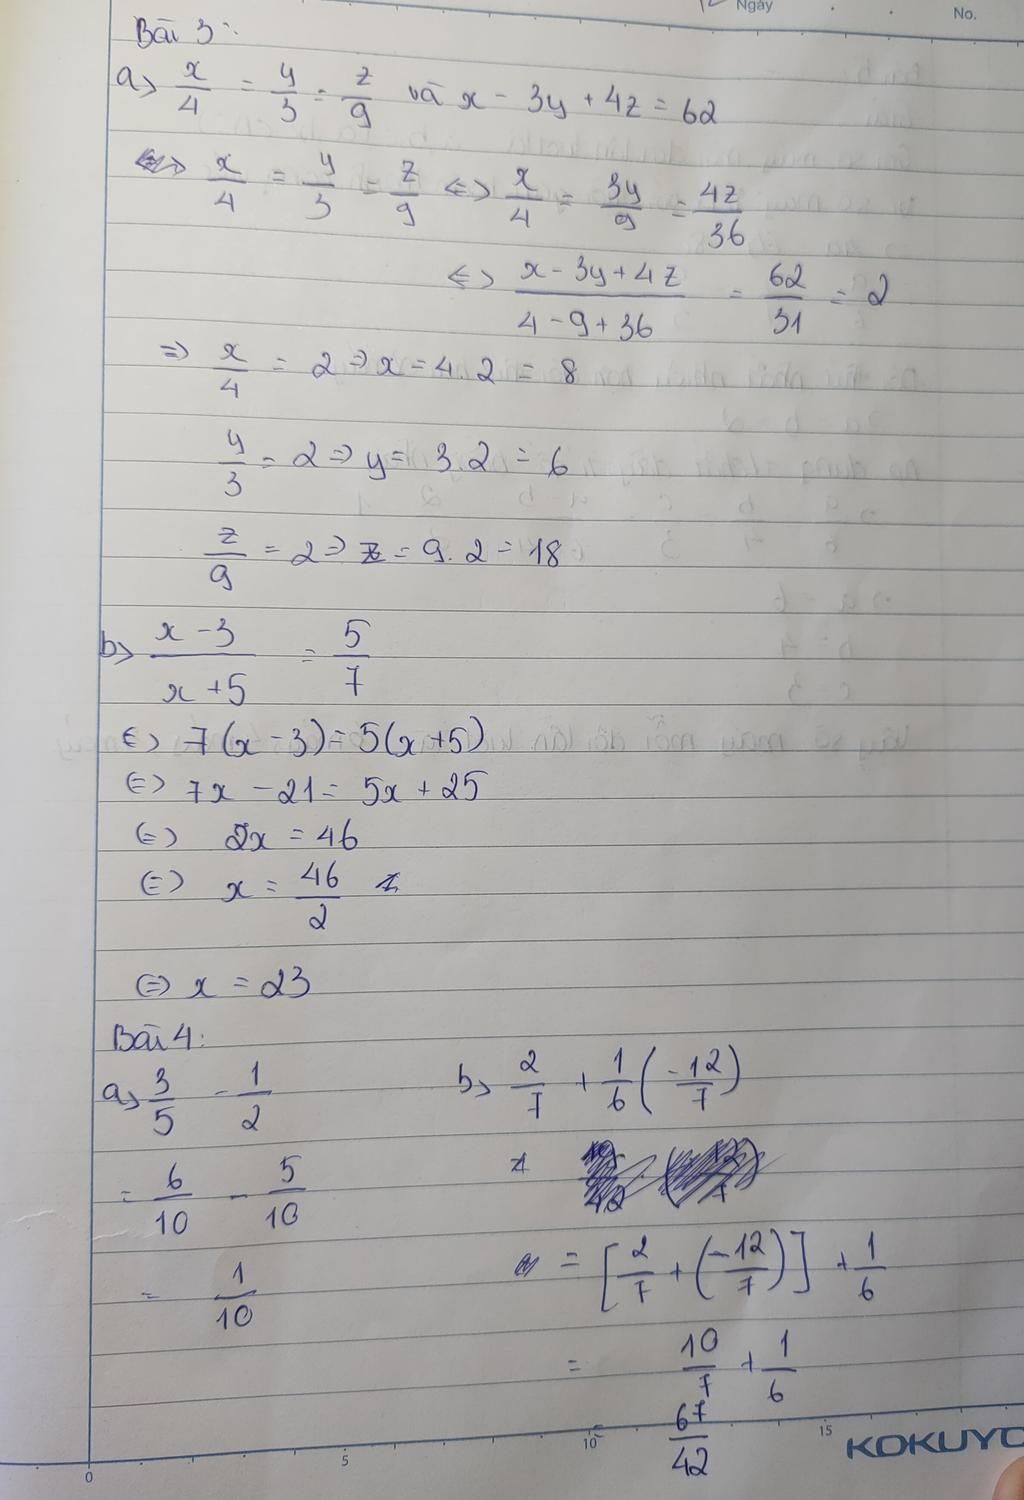 Ngày
No.
Bài 3:
a> x/4 = y/3 = z/9 và x - 3y + 4z = 62
<=> x/4 = y/3 = z/9 <=> x/4 = 3y/9 = 4z/36
<=> (x - 3y + 4z)/(4 - 9 + 36) = 62/31 = 2
=> x/4 = 2 => x = 4.2 = 8
y/3 = 2 => y = 3.2 = 6
z/9 = 2 => z = 9.2 = 18
b> (x - 3)/(x + 5) = 5/7
<=> 7(x - 3) = 5(x + 5)
<=> 7x - 21 = 5x + 25
<=> 2x = 46
<=> x = 46/2
<=> x = 23
Bài 4:
a> 3/5 - 1/2
= 6/10 - 5/10
= 1/10
b> 2/7 + 1/6 (-12/7)
= [2/7 + (-12/7)] + 1/6
= 10/7 + 1/6
= 67/42
0 5 10 15
KOKUYO